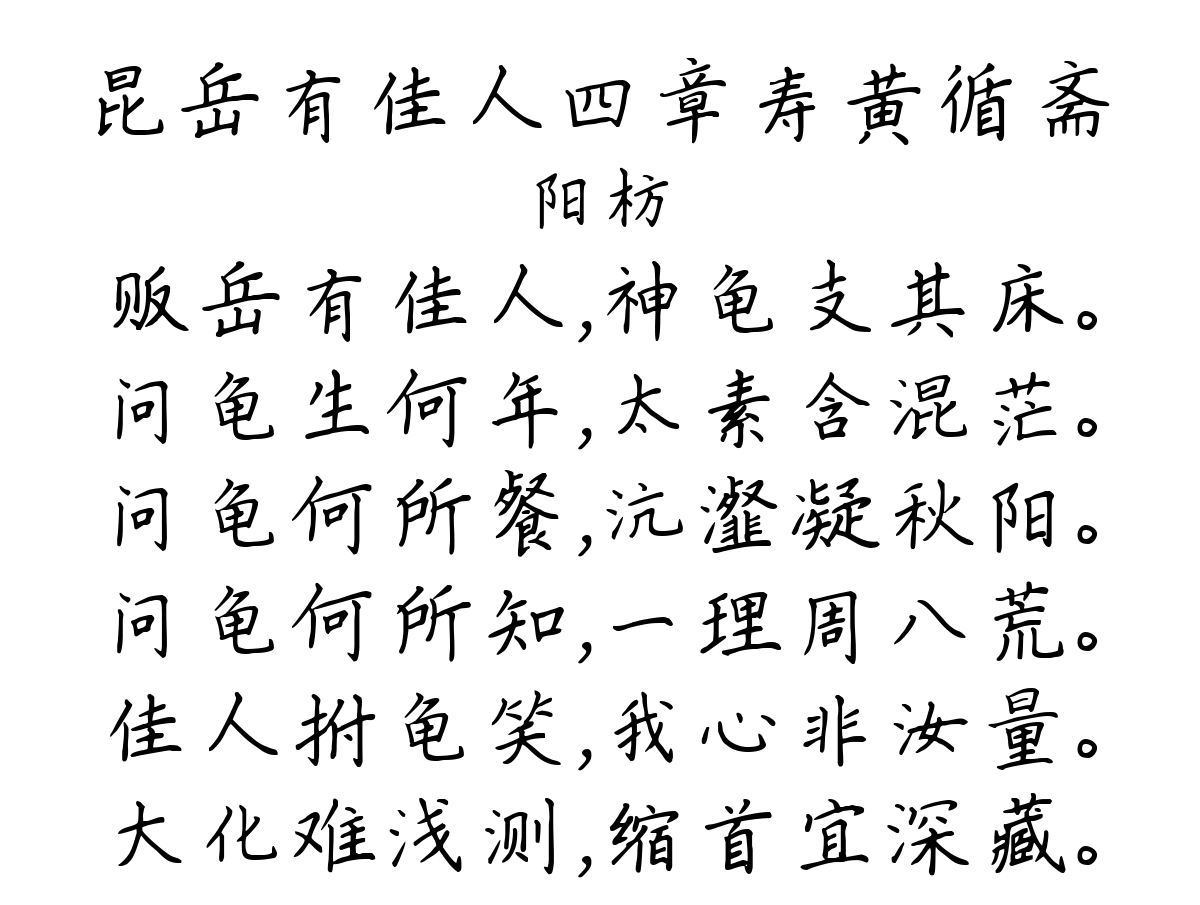 昆岳有佳人四章寿黄循斋
阳枋
贩岳有佳人,神龟支其床。
问龟生何年,太素含混茫。
问龟何所餐,沆瀣凝秋阳。
问龟何所知,一理周八荒。
佳人拊龟笑,我心非汝量。
大化难浅测,缩首宜深藏。